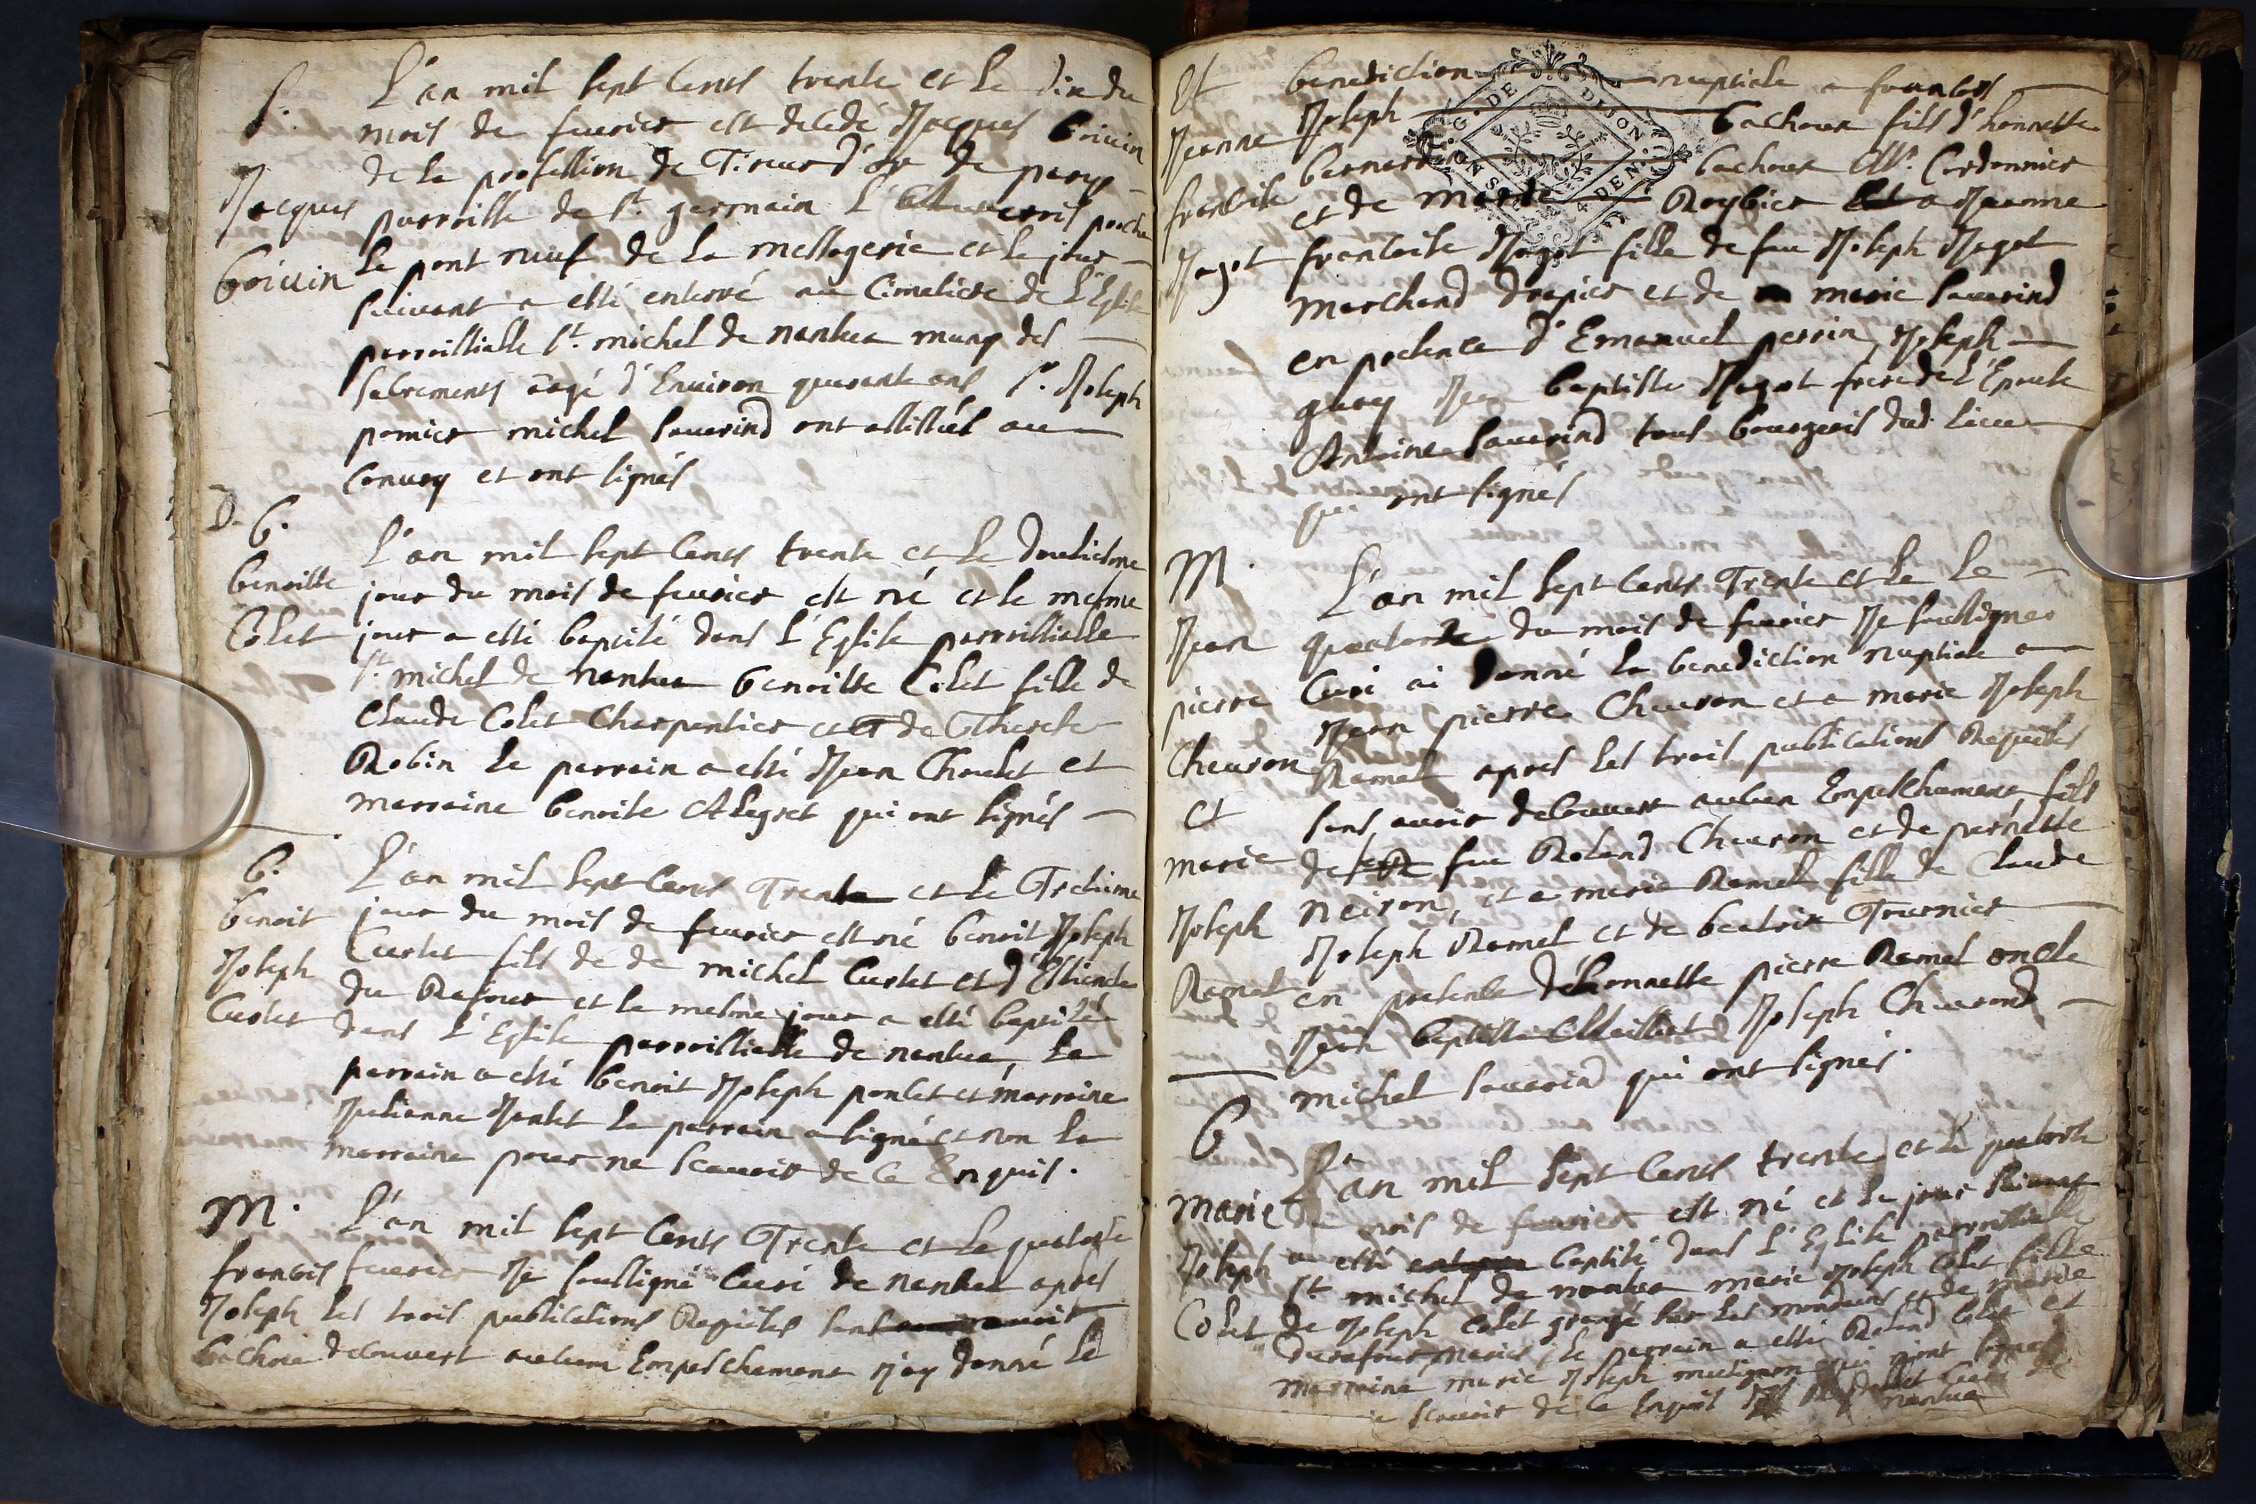 S.
L'an mil sept Cents trente et le dix du
mois de feurier est decedé Jacques boiuin
de la profession de Tireur d'or de parys
Jacques parroisse de St. germain L'
le pont neuf de la messagerie et le jour
boiuin
suiuant a esté enterré au Cimetiere de L'Eglise
parroissialle St. michel de nantua muny des
sacrements aagé d'Enuiron quarante ans Sr. Joseph
pomier michel sauerind ont assistés au
Conuoy et ont signés
D. b.
L'an mil sept Cents trente et le douziesme
benoitte jour du mois de feurier est né et le mesme
Colet jour a esté baptisé dans L'Eglise parroissialle
St. michel de nantua benoitte Colet fille de
Claude Colet Charpentier et de Therese
Robin le parrain a esté Jean Choulet et
marraine benoite Alegret qui ont signés
b. L'an mil sept Cents Trente et le Treisime
benoit jour du mois de feurier est né benoit Joseph
Joseph Curlet fils de de michel Curlet et d'Estiennette
Curlet du Rafour et le mesme jour a esté baptisé
dans L'Eglise parroissialle de nantua, le
parrain a esté benoit Joseph ponlet et marraine
Julienne Jantet le parrain a signé et non la
marraine pour ne scauoir de ce Enquis.
M. L'an mil sept Cents Trente et le quatorze
francois feurier Je soussigné Curé de nantua apres
Joseph les trois publications Requises sans
bachoue decouuert auccun Empeschement j'ay donné le
Et benediction nuptiale a francois
Jeanne Joseph bachoux fils d'honneste
francoise bernardin bachoux Mr. Cordonnier
et de marie Roybier a Jeanne
Jagot francoise Jagot fille de feu Joseph Jagot
marchand drapier et de marie sauerind
en presence d'Emanuel perrin, Joseph
guoy Jean baptiste Jagot frere de L'Epouse
Antoine sauerind tous bourgeois dud. lieu
qui ont signés
M.
L'an mil sept Cents Trente et le le
Jean quatorze du mois de feurier Je soussigné
pierre Curé ai donné la benediction nuptiale a
Jean pierre Cheuron et a marie Joseph
Cheuron Ramel apres les trois publications Requises
et sans auoir decouuert aucun Empeschement fils
marie de feu Roland Cheuron et de pernette
Joseph neiron, et a marie Ramel fille de Claude
Joseph Ramel et de beatrix Tournier
Ramel en presence d'honneste pierre Ramel oncle
Jean baptiste Maillet Joseph Cheurond
michel sauerind qui ont signés.
b
L'an mil sept Cents trente et le quatorze
marie du mois de feurier est né et le jour suiuant
Joseph a esté baptisé dans L'Eglise parroissialle
St michel de nantua marie Joseph Colet fille
Colet de Joseph Colet grangé sur les et de marie
durafour maries, le parrain a esté Roland Colet et
marraine marie Joseph qui n'ont signés
scauoir de ce Enquis Curé de
nantua
G. DE DIJON